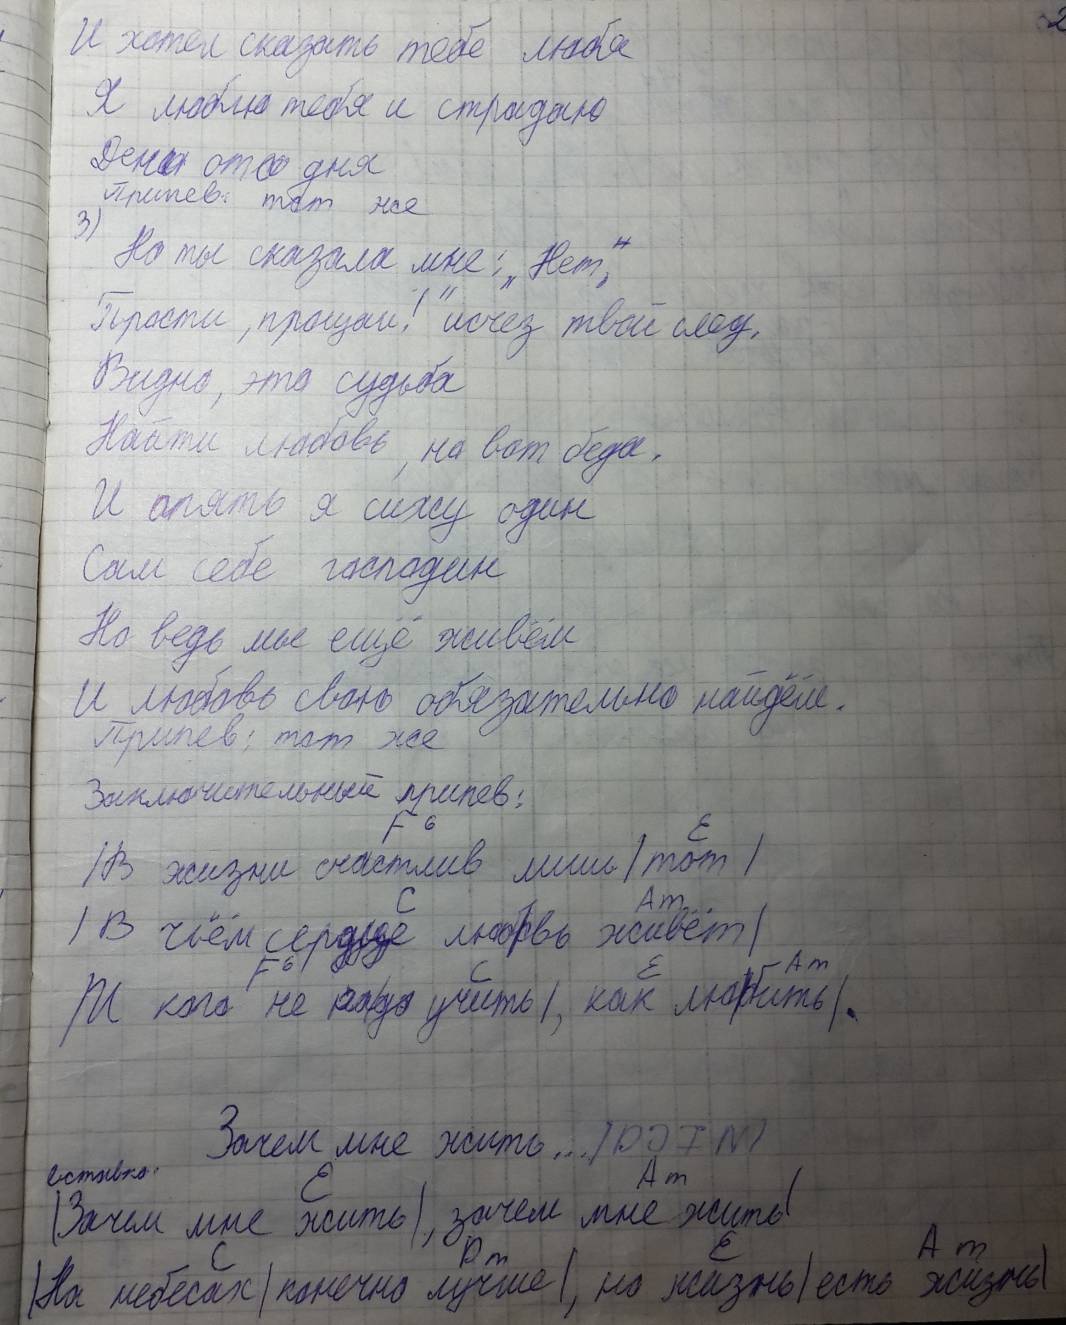 2
И хотел сказать тебе любя
Я люблю тебя и страдаю
День ото дня
Припев: тот же
3)
Но ты сказала мне: „Нет,"
„Прости, прощай!" исчез твой след.
Видно, это судьба
Найти любовь, но вот беда.
И опять я сижу один
Сам себе господин
Но ведь мы ещё живём
И любовь свою обязательно найдём.
Припев: тот же
Заключительный припев:
F6 E
/В жизни счастлив лишь/тот/
C Am
/В чьём сердце любовь живёт/
F6 C E Am
/И кого не надо учить/, как любить/.
Зачем мне жить...
вставка:
E Am
/Зачем мне жить/, зачем мне жить/
C Dm E Am
/На небесах/конечно лучше/, но жизнь/есть жизнь/